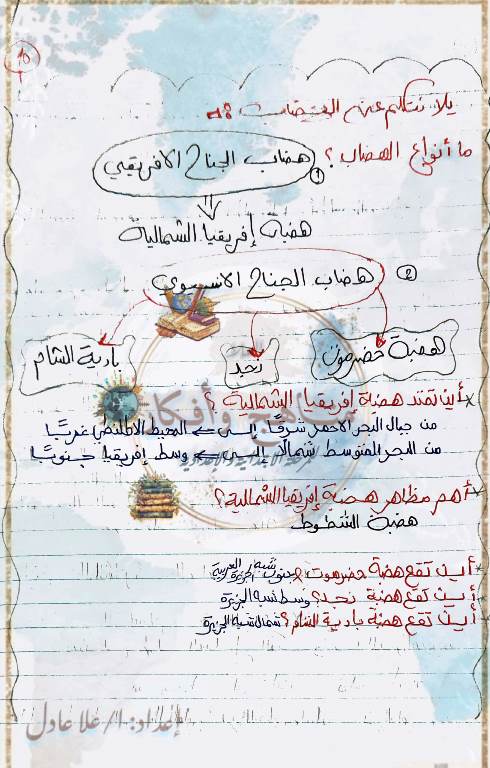 10
يلا نتكلم عن الهضاب
ما أنواع الهضاب؟
1 هضاب الجناح الافريقي
هضبة إفريقيا الشمالية
2 هضاب الجناح الاسيوي
هضبة حضرموت
نجد
بادية الشام
* أين تمتد هضبة إفريقيا الشمالية؟
من جبال البحر الاحمر شرقًا إلى المحيط الاطلنطي غربيًا
من البحر المتوسط شمالًا إلى وسط إفريقيا جنوبيًا
* أهم مظاهر هضبة إفريقيا الشمالية؟
هضبة الشطوط
* أين تقع هضبة حضرموت؟ جنوب شبه الجزيرة العربية
* أين تقع هضبة نجد؟ وسط شبه الجزيرة
* أين تقع هضبة بادية الشام؟ شمال شبه الجزيرة
مناهج وأفكار
إعداد: أ/ علا عادل